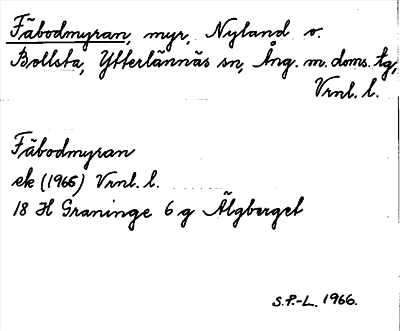 Fäbodmyran, myr, Nyland o.
Bollsta, Ytterlännäs sn, Ång. m. doms. tg,
Vrnl. l.
Fäbodmyran
ek (1966) Vrnl. l.
18 H Graninge 6 g Älgberget
S.P.-L. 1966.